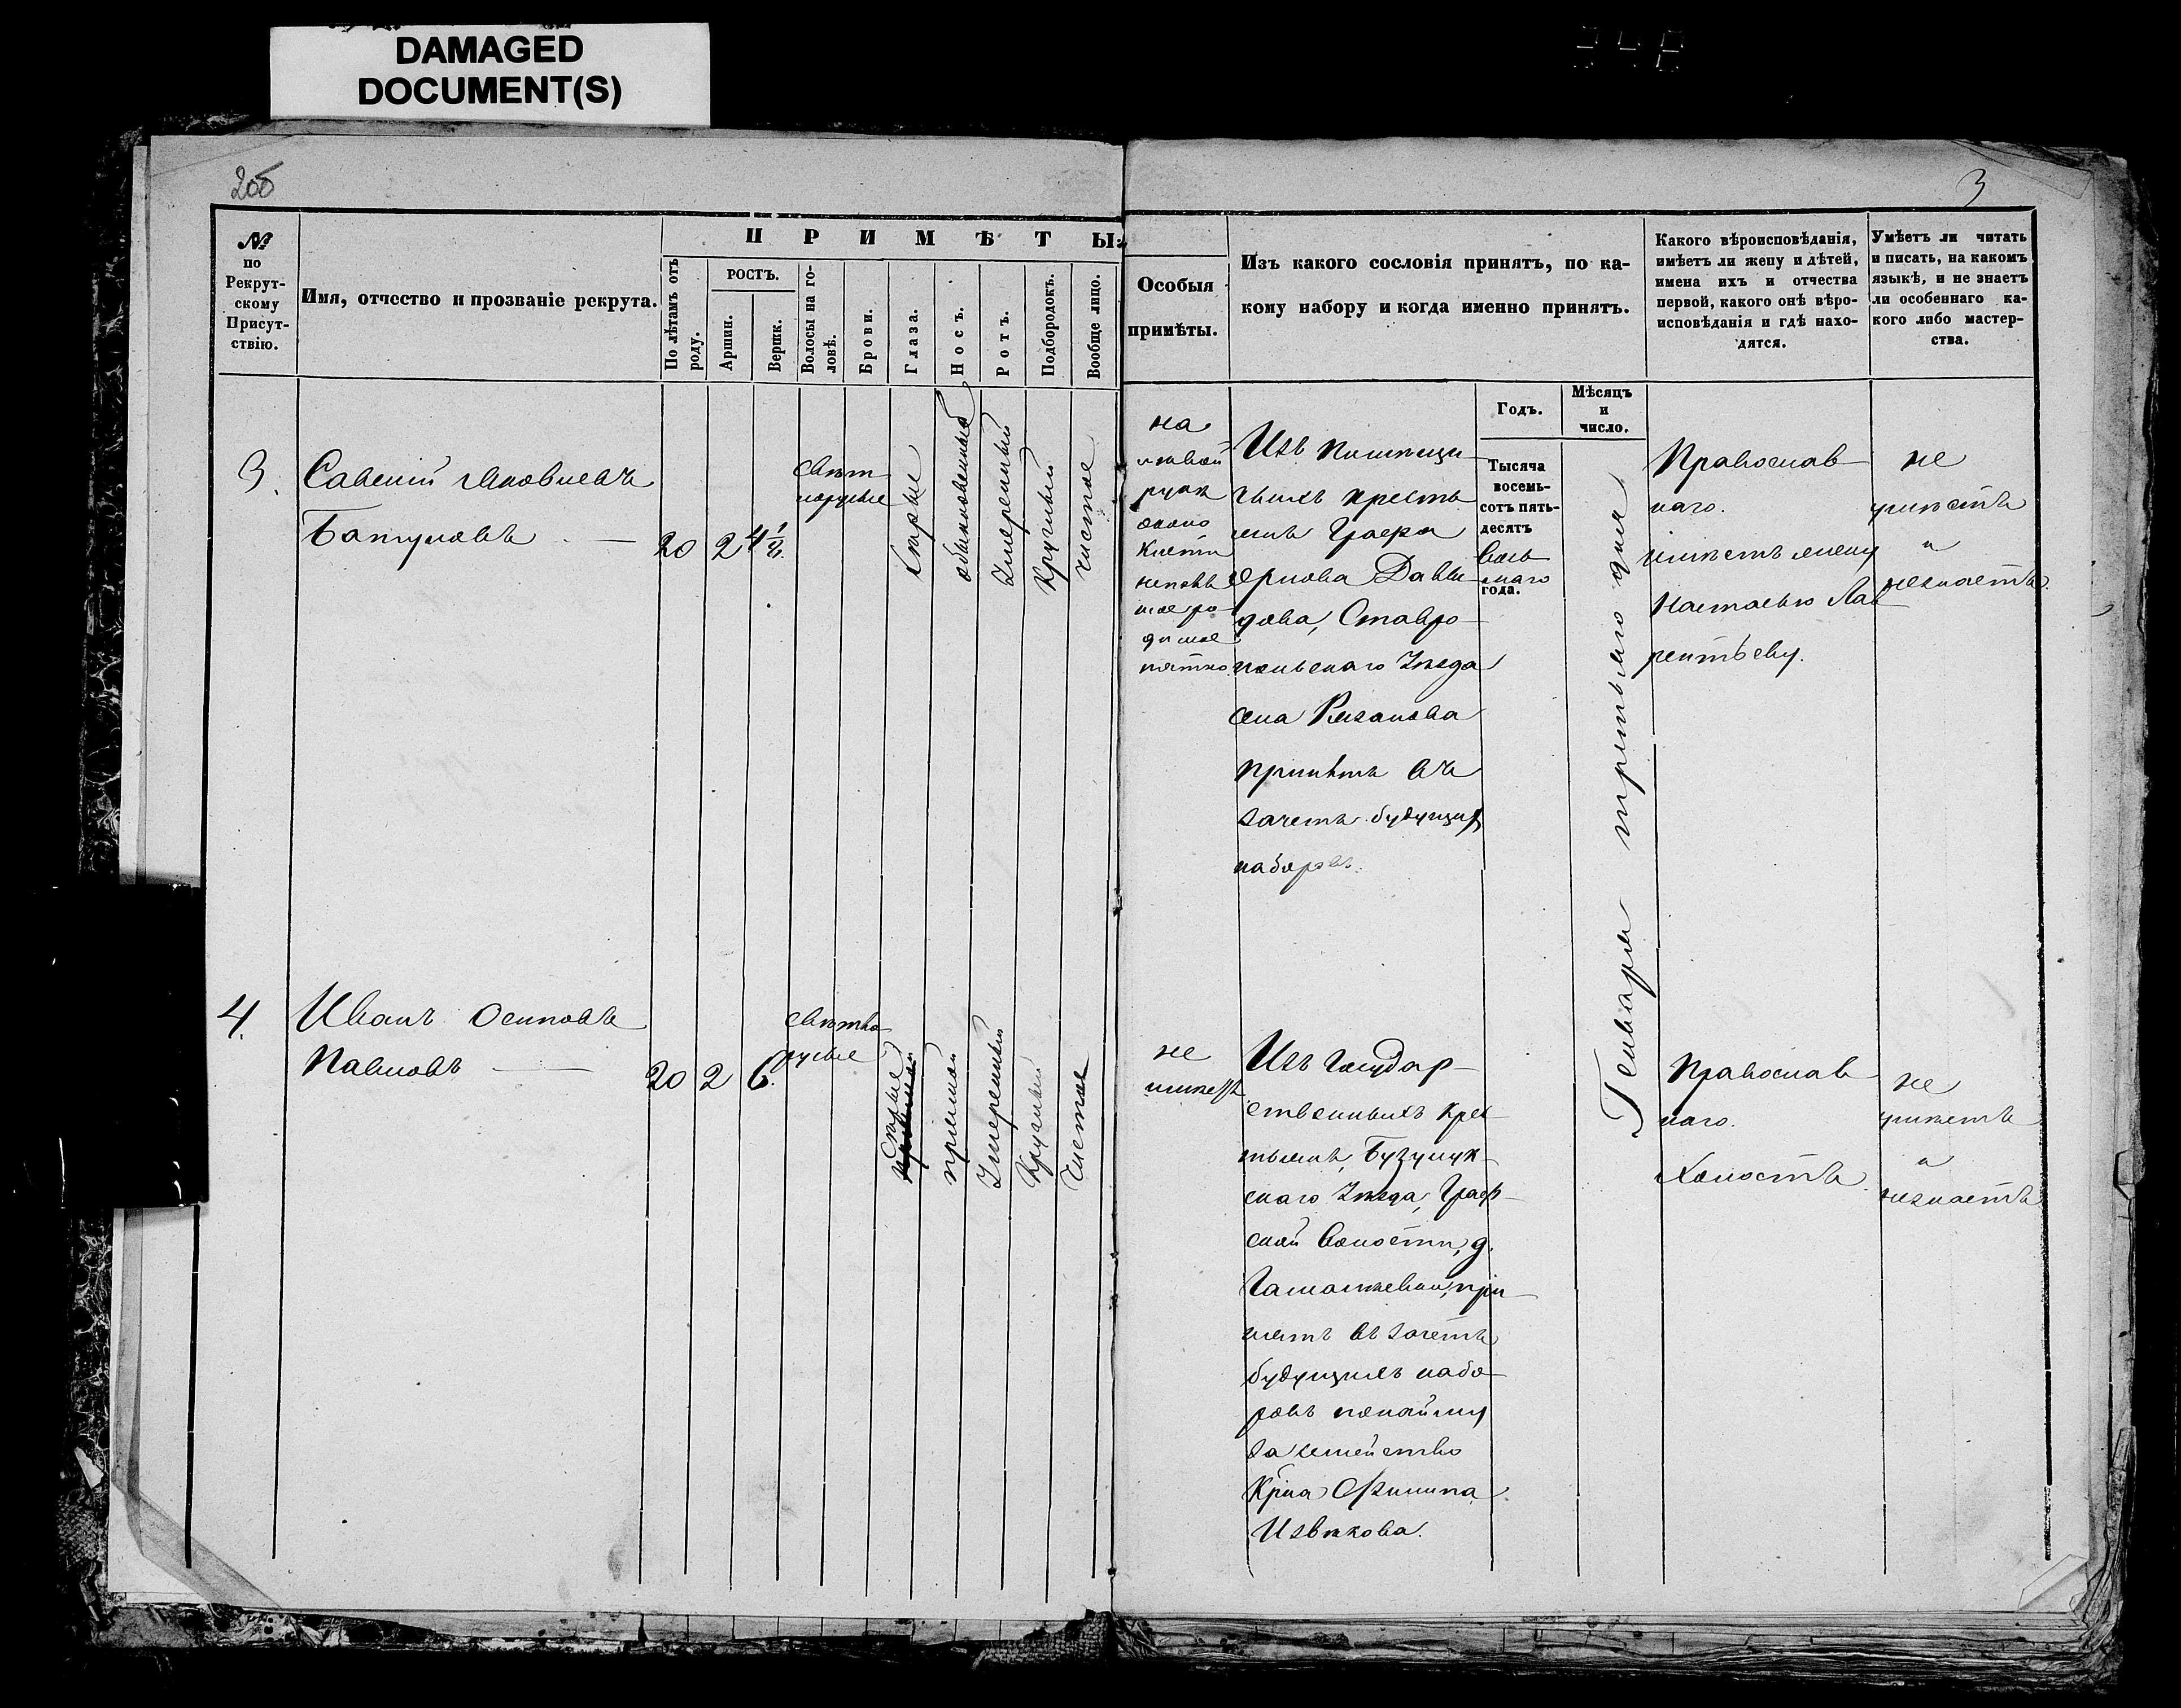 DAMAGED
DOCUMENT(S)
2об
3
№
по
Рекрут-
скому
Присут-
ствію.
Имя, отчество и прозваніе рекрута.
ПРИМѢТЫ:
По лѣтамъ отъ
роду.
РОСТЪ.
Аршин.
Вершк.
Волосы на го-
ловѣ.
Брови.
Глаза.
Носъ.
Ротъ.
Подбородокъ.
Вообще лицо.
Особыя
примѣты.
Изъ какого сословія принятъ, по ка-
кому набору и когда именно принятъ.
Годъ.
Мѣсяцъ
и
число.
Какого вѣроисповѣданія,
имѣетъ ли жену и дѣтей,
имена ихъ и отчества
первой, какого онѣ вѣро-
исповѣданія и гдѣ нахо-
дятся.
Умѣетъ ли читать
и писать, на какомъ
языкѣ, и не знаетъ
ли особеннаго ка-
кого либо мастер-
ства.
3.
Савелій Яковлевъ
Батуловъ
20
2
4
свѣт
лорусые
сѣрые
обыкновенный
умѣренный
круглый
чистое
на
лѣвой
руке
около
кисти
неболь
шое ро
димое
пятно.
Изъ помѣщи
чьихъ кресть
янъ Графа
Орлова Давы
дова, Ставро
польскаго Уѣзда
села Рязанова
принятъ въ
зачетъ будущих
наборовъ.
Тысяча
восемь-
сотъ пять-
десятъ
вось
маго
года.
Генваря третьяго дня
Православ
наго.
имѣетъ жену
Настасью Лав
рентьеву.
не
умѣетъ
и
незнаетъ.
4.
Иванъ Осиповъ
Павловъ
20
2
6.
свѣтло
русые
сѣрые
прямой
умѣренный
круглый
чистое
не
имѣетъ.
Изъ Государ
ственныхъ крес
тьянъ, Бузулук
скаго Уѣзда, Граф
ской Волости, д.
принятъ въ зачетъ
будущихъ набо
ровъ понайму
за семейство
Крна Филипа
Извѣкова.
Православ
наго.
Холостъ
не
умѣетъ
и
незнаетъ